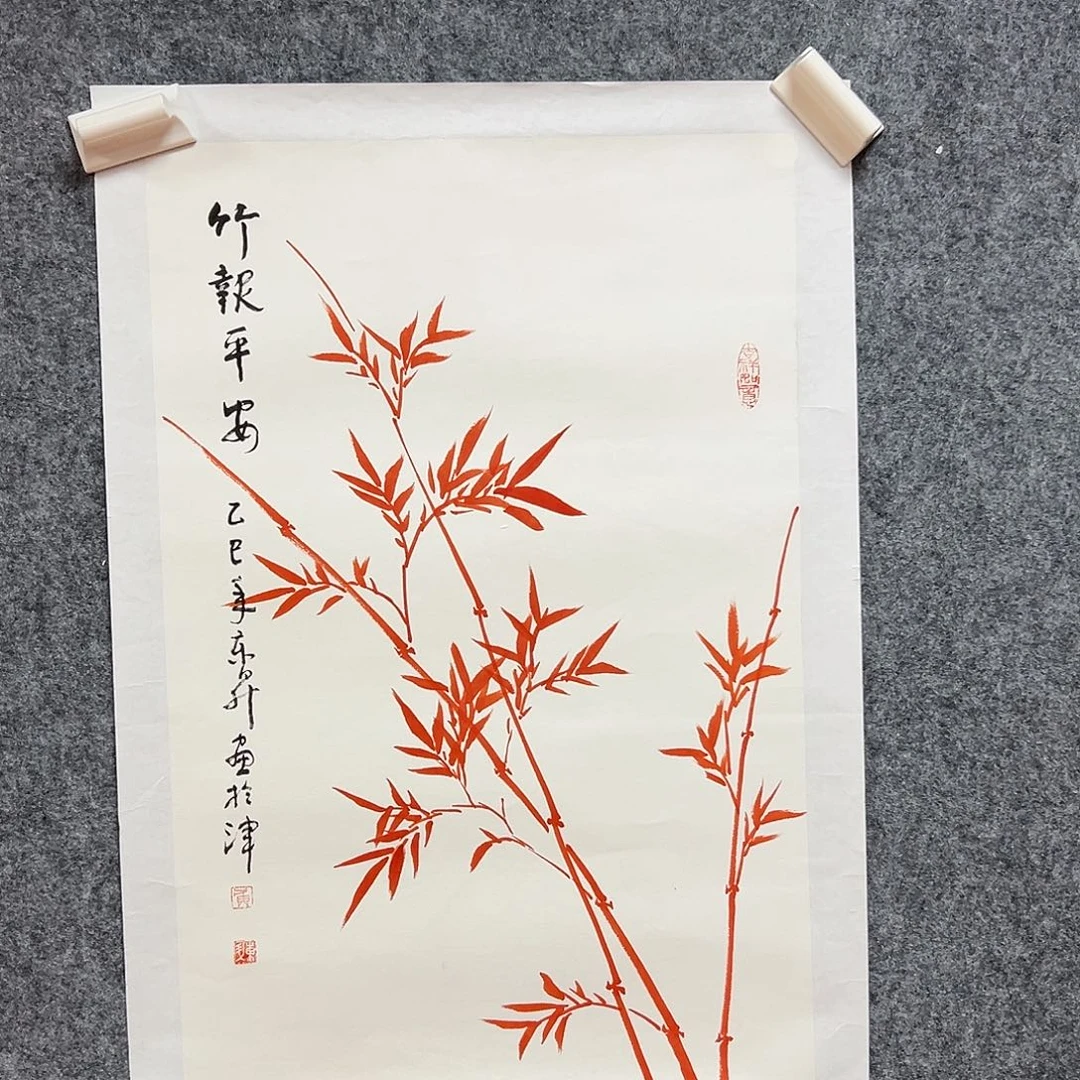 竹報平安
乙巳年東昇畫於津